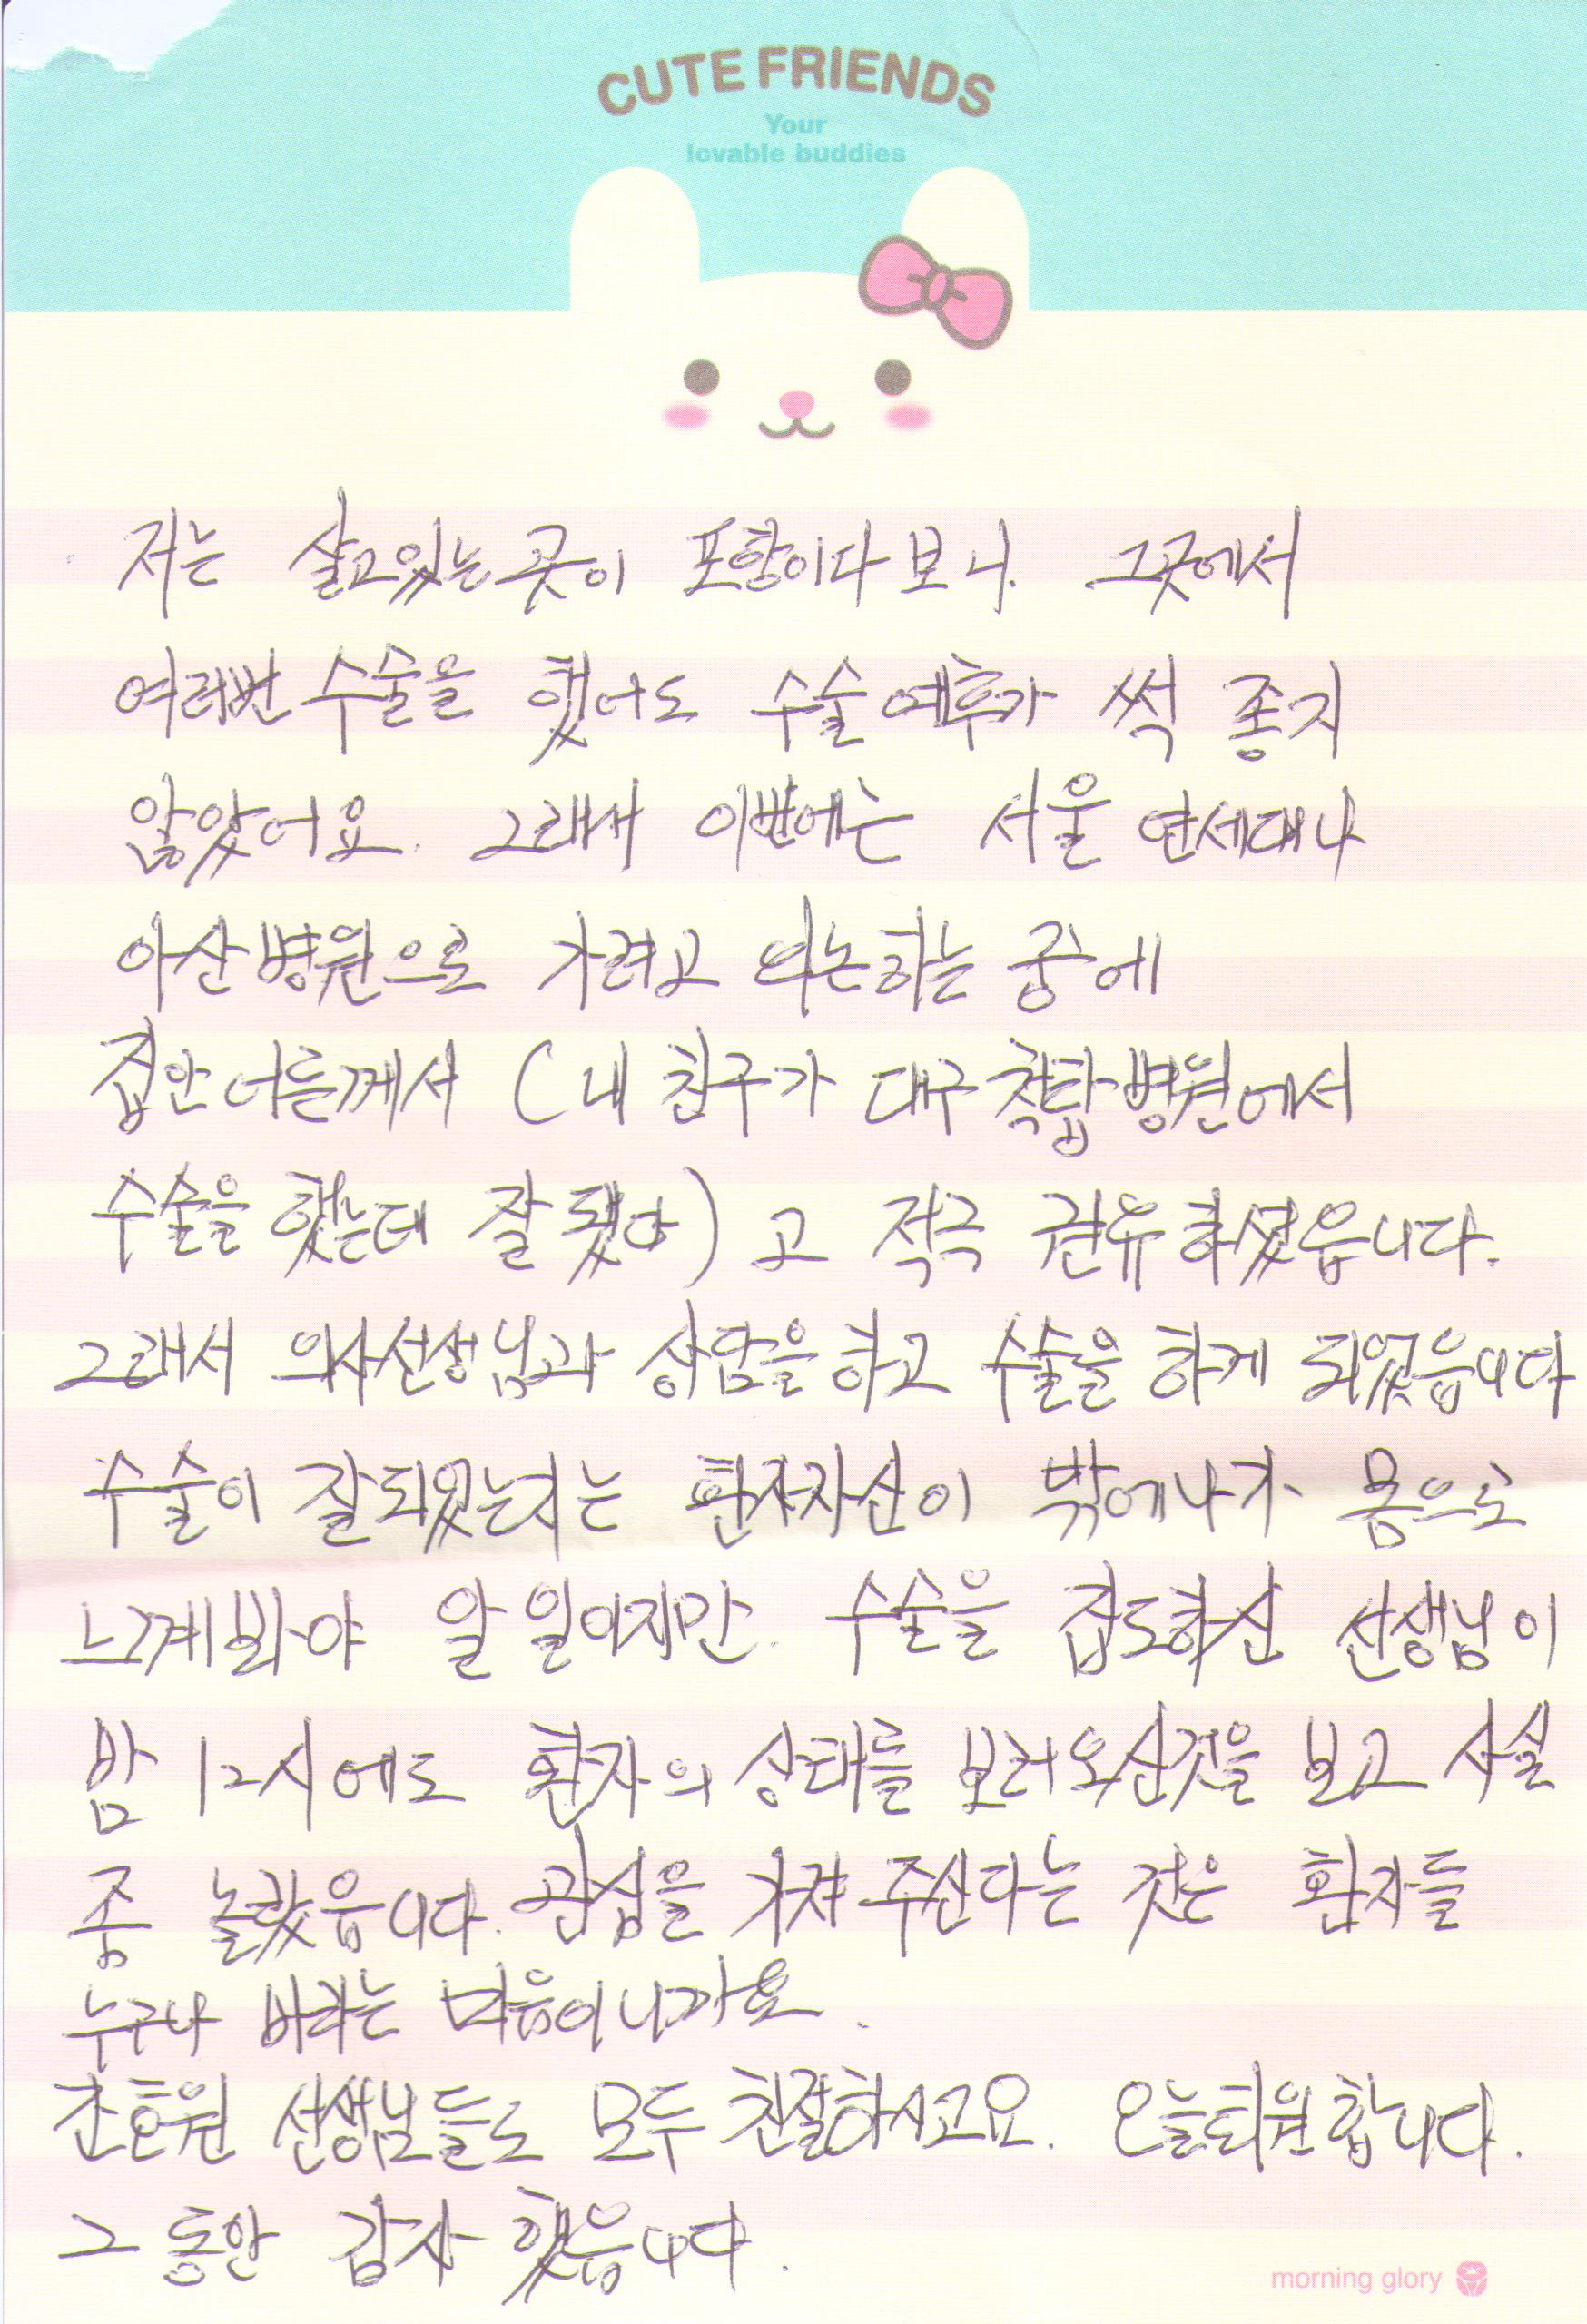 CUTE FRIENDS
Your
lovable buddies
저는 살고있는 곳이 포항이다 보니. 그곳에서
여러번 수술을 했어도 수술예후가 썩 좋지
않았어요. 그래서 이번에는 서울 연세대나
아산병원으로 가려고 의논하는 중에
집안 어른께서 (내 친구가 대구 척탑병원에서
수술을 했는데 잘 됐야) 고 적극 권유하셨읍니다.
그래서 의사선생님과 상담을 하고 수술을 하게 되었읍니다
수술이 잘되었는지는 환자자신이 밖에나가 몸으로
느계봐야 알 일이지만. 수술을 집도하신 선생님이
밤 12시에도 환자의 상태를 보러 오신것을 보고 사실
좀 놀랐읍니다. 관심을 가져 주신다는 것은 환자들
누구나 바라는 마음이니까요.
간호원 선생님들도 모두 친절하시고요. 오늘퇴원합니다.
그 동안 감사 했읍니다.
morning glory